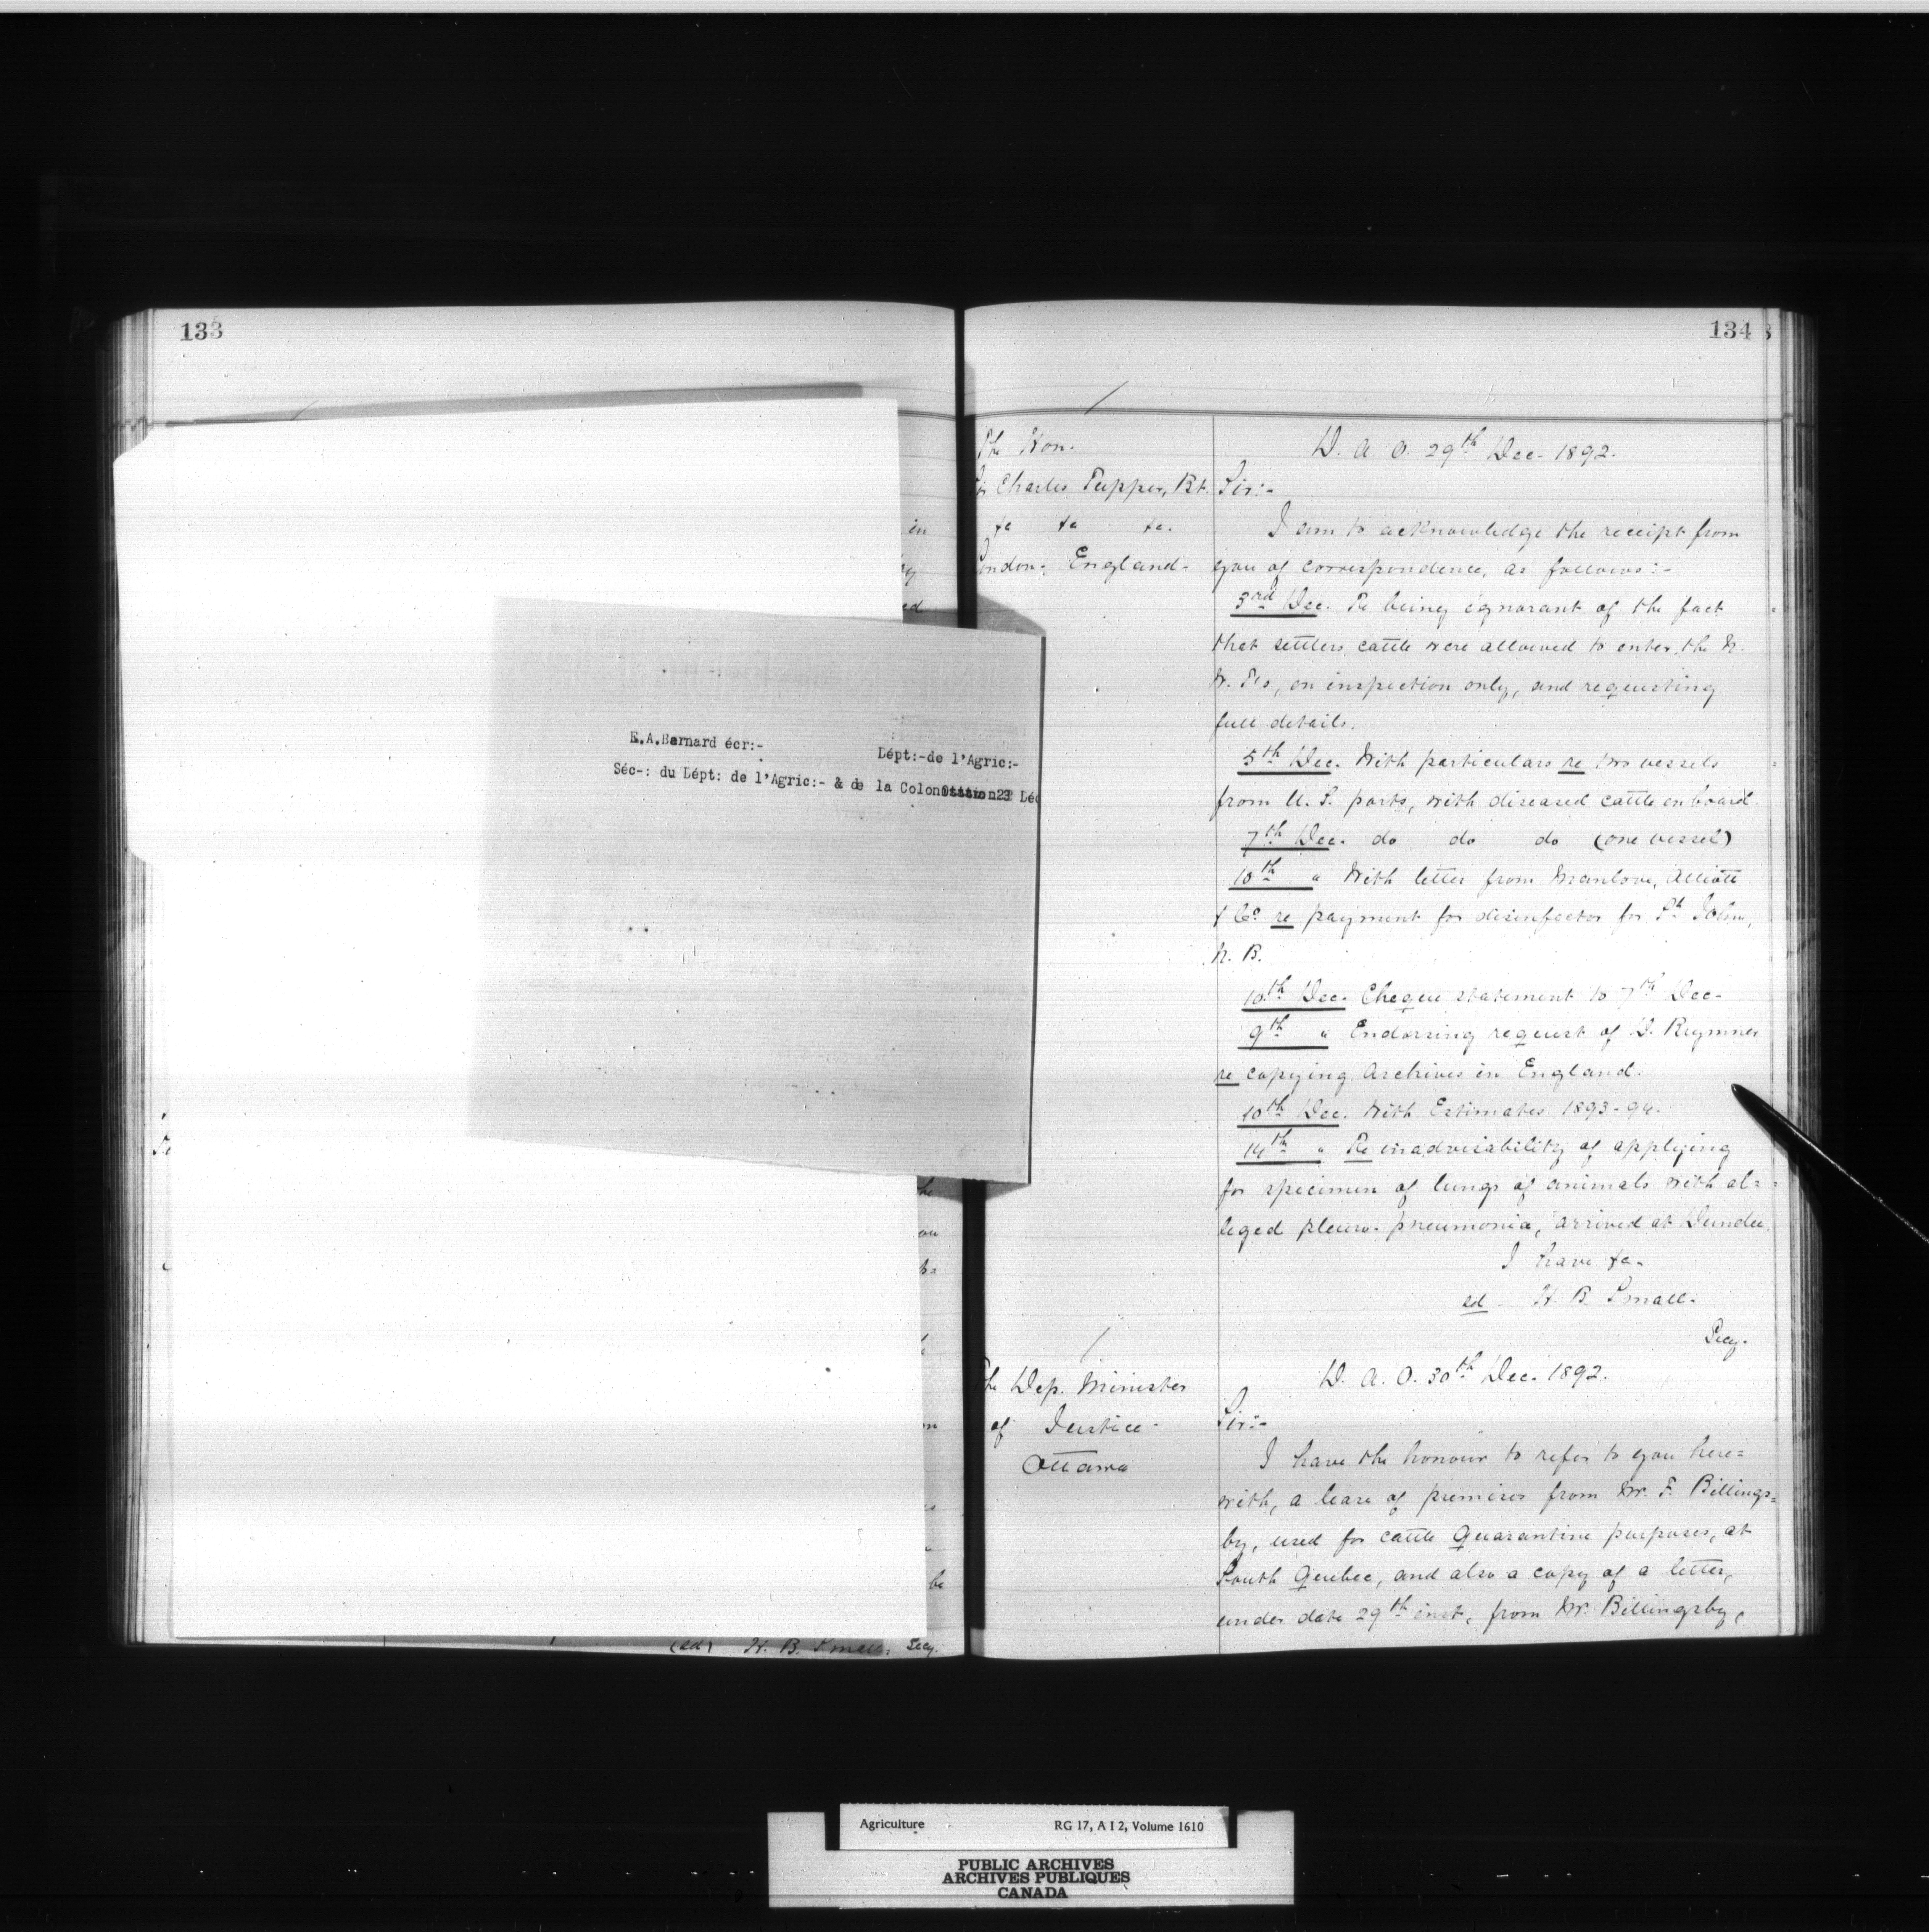 133
in
ed
E.A.Bernard écr:-
Dépt:-de l'Agric:-
Séc-: du Dépt: de l'Agric:- & de la Colon
(sd) H. B. Small: Secy.
134
The Hon.
Sir Charles Tupper, Bt.
&c &c &c.
London, England-
D. A. O. 29th Dec. 1892.
Sir:-
I am to acknowledge the receipt from
you of correspondence, as follows:-
3rd Dec. Re being ignorant of the fact
that settlers cattle were allowed to enter the N.
W. T's, on inspection only, and requesting
full details.
5th Dec. With particulars re two vessels
from U. S. ports, with diseased cattle on board.
7th Dec. do do do (one vessel)
10th " With letter from Manlove, Alliott
& Co. re payment for disinfector for St John,
N. B.
10th Dec. Cheque statement to 7th Dec-
9th " Endorsing request of D. Brymner
re copying Archives in England.
10th Dec. With Estimates 1893-94.
14th " Re inadvisability of applying
for specimen of lungs of animals with al=
leged pleuro-pneumonia, arrived at Dundee.
I have &c-
sd. H. B. Small.
Secy.
The Dep. Minister
of Justice-
Ottawa
D. A. O. 30th Dec. 1892.
Sir:-
I have the honour to refer to you here=
with, a lease of premises from Mr. F. Billings=
by, used for cattle Quarantine purposes, at
South Quebec, and also a copy of a letter,
under date 29th inst, from Mr. Billingsby,
Agriculture RG 17, A I 2, Volume 1610
PUBLIC ARCHIVES
ARCHIVES PUBLIQUES
CANADA